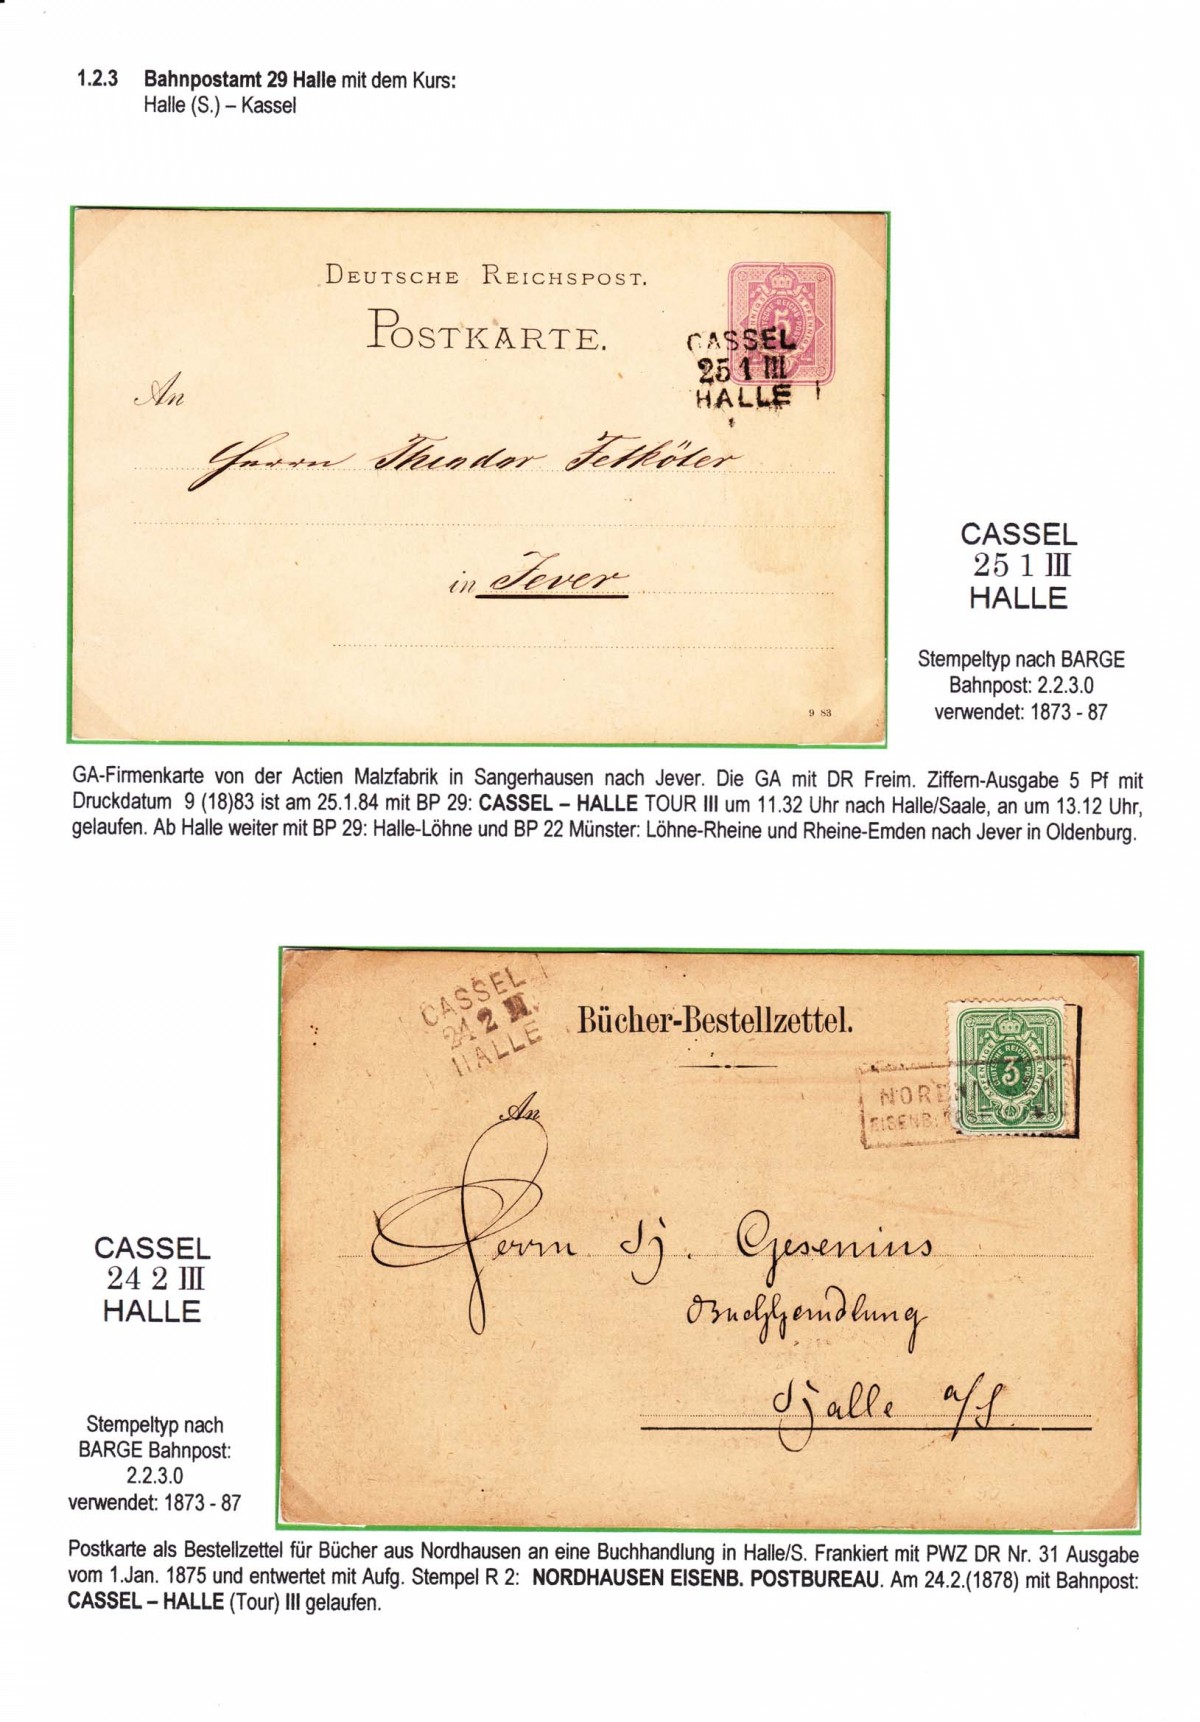 1.2.3 Bahnpostamt 29 Halle mit dem Kurs:
Halle (S.) – Kassel
DEUTSCHE REICHSPOST.
POSTKARTE.
5
CASSEL
25 1 III
HALLE
An
Herrn Theodor Fetköter
in Jever
9 83
CASSEL
25 1 III
HALLE
Stempeltyp nach BARGE
Bahnpost: 2.2.3.0
verwendet: 1873 - 87
GA-Firmenkarte von der Actien Malzfabrik in Sangerhausen nach Jever. Die GA mit DR Freim. Ziffern-Ausgabe 5 Pf mit
Druckdatum 9 (18)83 ist am 25.1.84 mit BP 29: CASSEL – HALLE TOUR III um 11.32 Uhr nach Halle/Saale, an um 13.12 Uhr,
gelaufen. Ab Halle weiter mit BP 29: Halle-Löhne und BP 22 Münster: Löhne-Rheine und Rheine-Emden nach Jever in Oldenburg.
CASSEL
24 2 III.
HALLE
Bücher-Bestellzettel.
3
An
Herrn Hj. Gesenius
Buchhandlung
Halle a/S.
CASSEL
24 2 III
HALLE
Stempeltyp nach
BARGE Bahnpost:
2.2.3.0
verwendet: 1873 - 87
Postkarte als Bestellzettel für Bücher aus Nordhausen an eine Buchhandlung in Halle/S. Frankiert mit PWZ DR Nr. 31 Ausgabe
vom 1.Jan. 1875 und entwertet mit Aufg. Stempel R 2: NORDHAUSEN EISENB. POSTBUREAU. Am 24.2.(1878) mit Bahnpost:
CASSEL – HALLE (Tour) III gelaufen.